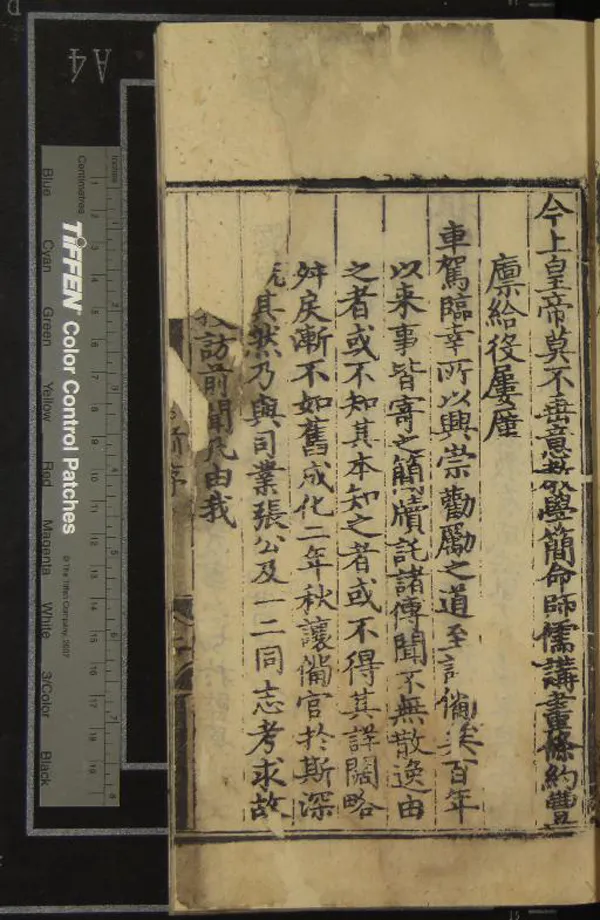 今上皇帝莫不垂意教學簡命師儒講畫條約豐
廪給役屢廑
車駕臨幸所以興崇勸勵之道至詳備矣百年
以来事皆寄之簡牘託諸傳聞不無散逸由
之者或不知其本知之者或不得其詳闊略
舛戾漸不如舊成化二年秋讓備官於斯深
其然乃與司業張公及一二同志考求故
訪前聞凡由我
序
A4
Inches
Centimetres
TIFFEN Color Control Patches
© The Tiffen Company, 2007
Blue Cyan Green Yellow Red Magenta White 3/Color Black